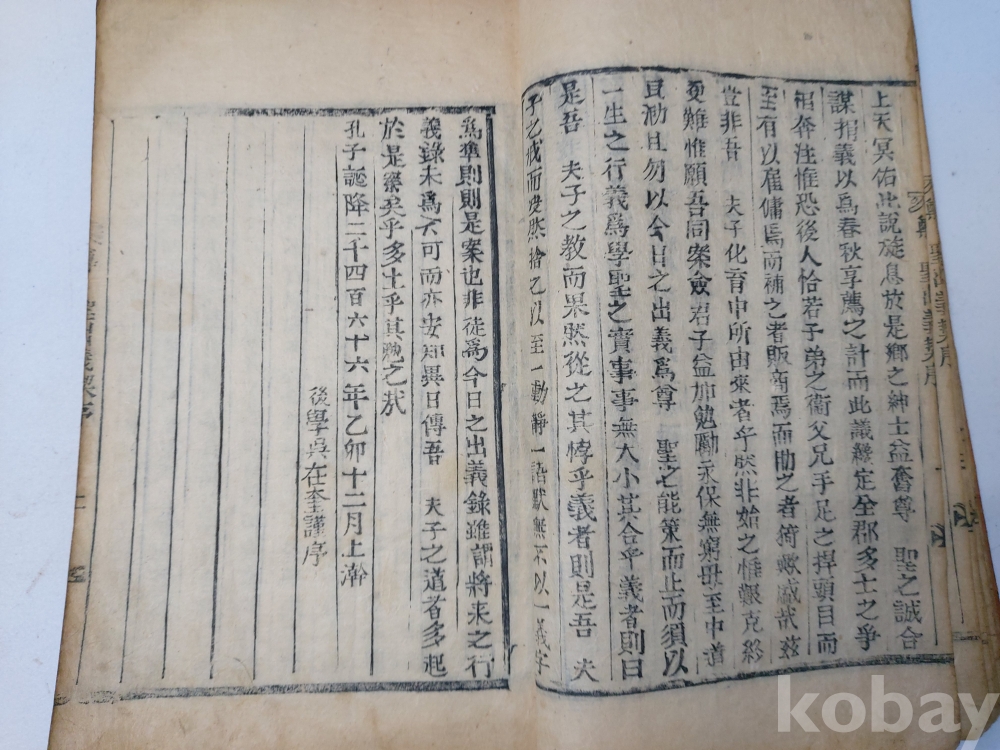 上天冥佑此說旋息於是鄉之紳士益奮尊　聖之誠合
謀捐義以爲春秋享薦之計而此議纔定全郡多士之爭
相奔注惟恐後人恰若子弟之衛父兄手足之捍頭目而
至有以雇傭焉而補之者販商焉而助之者猗歟盛哉玆
豈非吾　夫子化育中所由來者乎然非始之惟艱克終
更難惟願吾同案僉君子益加勉勵永保無窮毋至中道
且泐且勿以今日之出義爲尊　聖之能策而止而須以
一生之行義爲學聖之實事事無大小其合乎義者則曰
是吾　夫子之教而果然從之其悖乎義者則是吾　夫
子之戒而决然捨之以至一動靜一語默無不以一義字
爲準則則是案也非徒爲今日之出義錄雖謂將來之行
義錄未爲不可而亦安知異日傳吾　夫子之道者多起
於是案矣乎多士乎其勉之哉
孔子誕降二千四百六十六年乙卯十二月上澣
後學吳在奎謹序
kobay